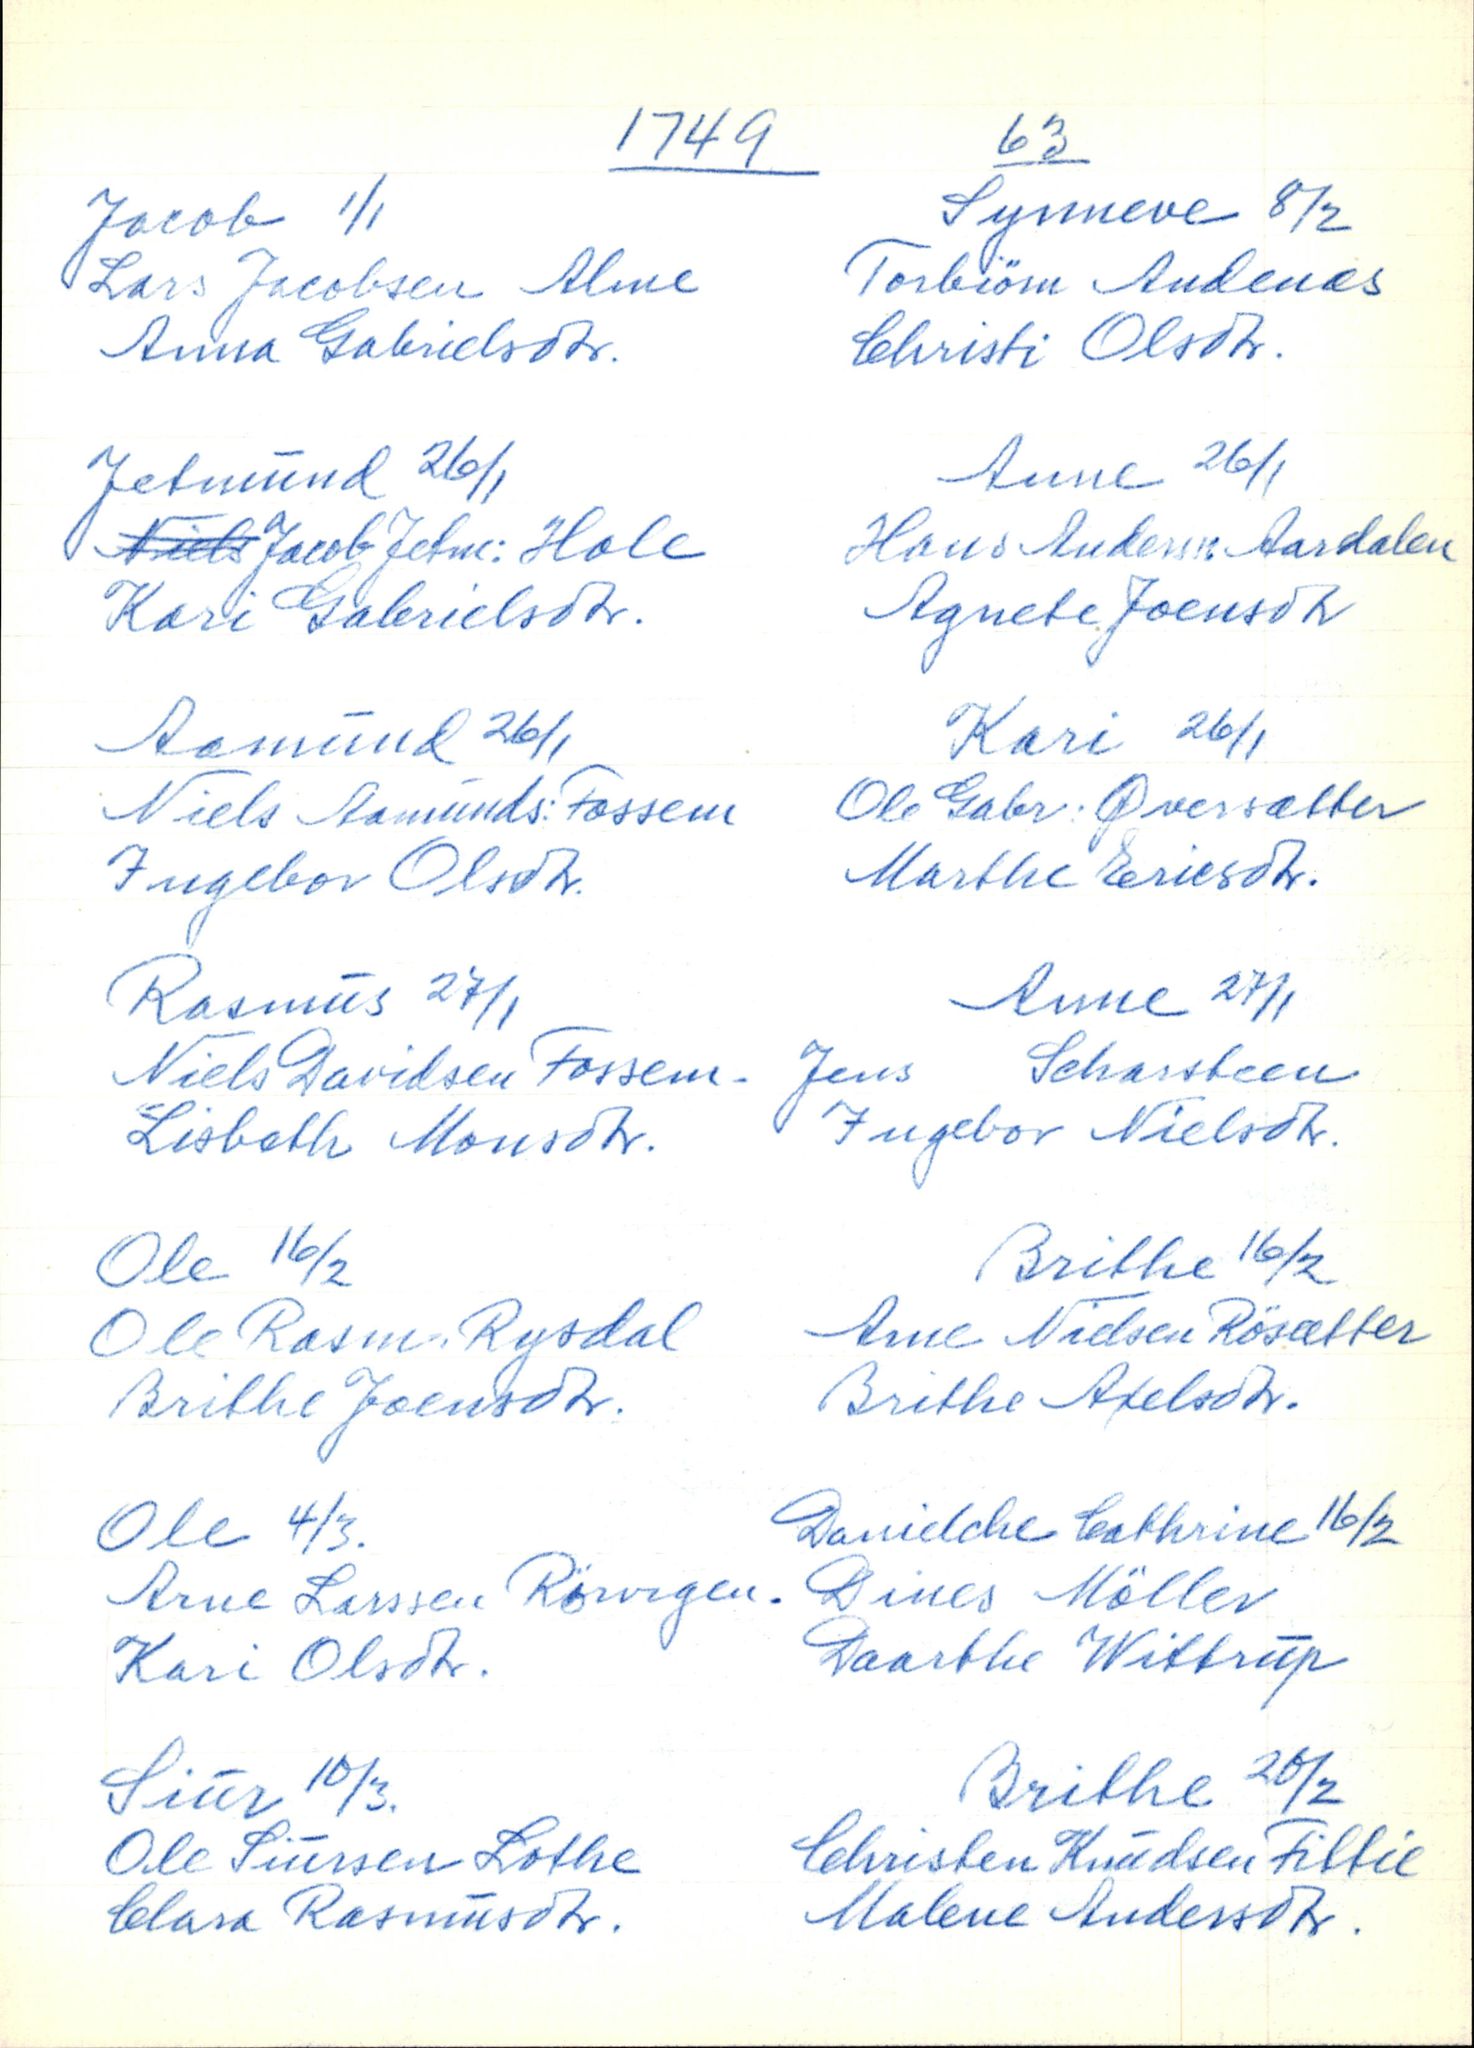 1749 63
Jacob 1/1
Lars Jacobsen Alme
Anna Gabrielsdtr.
Jetmund 26/1
Niels Jacob Jetm: Hole
Kari Gabrielsdtr.
Aamund 26/1
Niels Aamunds: Fossem
Ingebor Olsdtr.
Rasmus 27/1
Niels Davidsen Fossem.
Lisbeth Monsdtr.
Ole 16/2
Ole Rasm. Rysdal
Brithe Joensdtr.
Ole 4/3.
Arne Larssen Rörvigen.
Kari Olsdtr.
Siur 10/3.
Ole Siursen Lothe
Clara Rasmusdtr.
Synneve 8/2
Torbiörn Andenæs
Christi Olsdtr.
Anne 26/1
Hans Anderss: Aardalen
Agnete Joensdtr
Kari 26/1
Ole Gabr: Øversætter
Marthe Ericsdtr.
Anne 27/1
Jens Scharsteen
Ingebor Nielsdtr.
Brithe 16/2
Arne Nielsen Rösætter
Brithe Axelsdtr.
Danielche Cathrine 16/2
Dines Möller
Daarthe Wittrup
Brithe 20/2
Christen Knudsen Fittie
Malene Andersdtr.